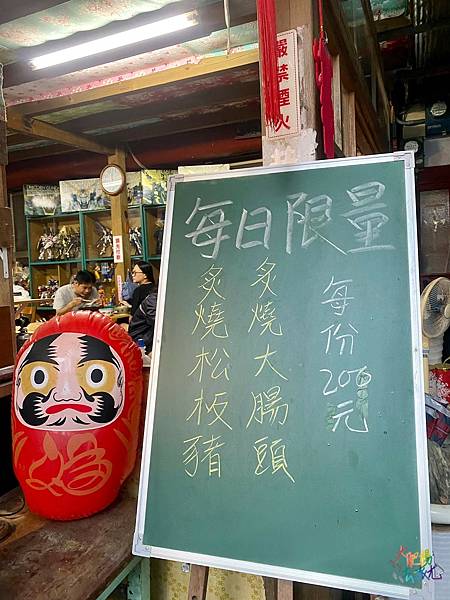 每日限量
每份200元
炙燒大腸頭
炙燒松板豬
嚴禁煙火